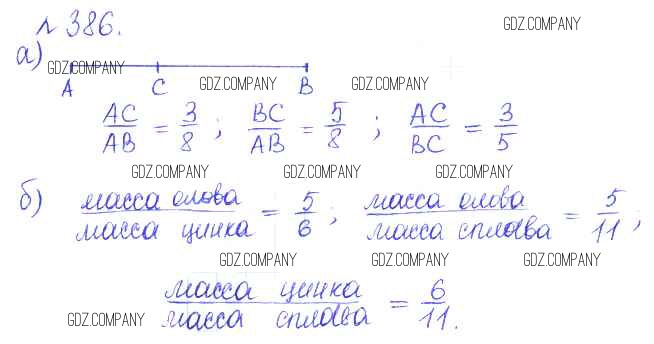 № 386.
GDZ.COMPANY
а)
GDZ.COMPANY
GDZ.COMPANY GDZ.COMPANY
A C B
AC/AB = 3/8 ; BC/AB = 5/8 ; AC/BC = 3/5
GDZ.COMPANY GDZ.COMPANY GDZ.COMPANY
б) масса олова/масса цинка = 5/6 ; масса олова/масса сплава = 5/11 ;
GDZ.COMPANY GDZ.COMPANY GDZ.COMPANY
масса цинка/масса сплава = 6/11.
GDZ.COMPANY